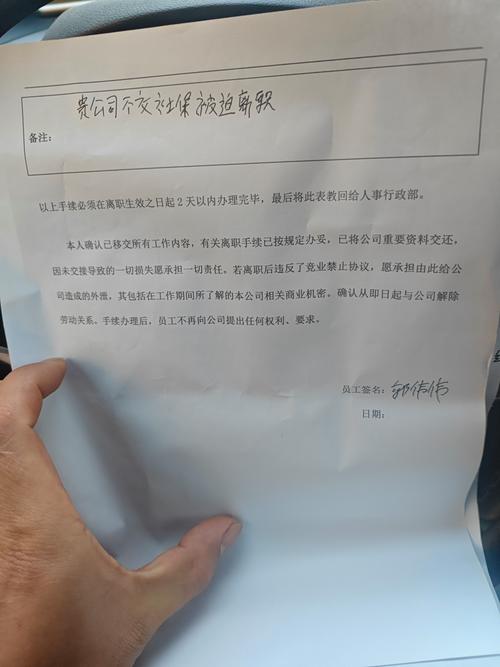 贵公司不交社保被迫辞职
备注：
以上手续必须在离职生效之日起2天以内办理完毕，最后将此表教回给人事行政部。
本人确认已移交所有工作内容，有关离职手续已按规定办妥，已将公司重要资料交还，
因未交接导致的一切损失愿承担一切责任。若离职后违反了竞业禁止协议，愿承担由此给公
司造成的外泄，其包括在工作期间所了解的本公司相关商业机密。确认从即日起与公司解除
劳动关系。手续办理后，员工不再向公司提出任何权利、要求。
员工签名：郭伟伟
日期：